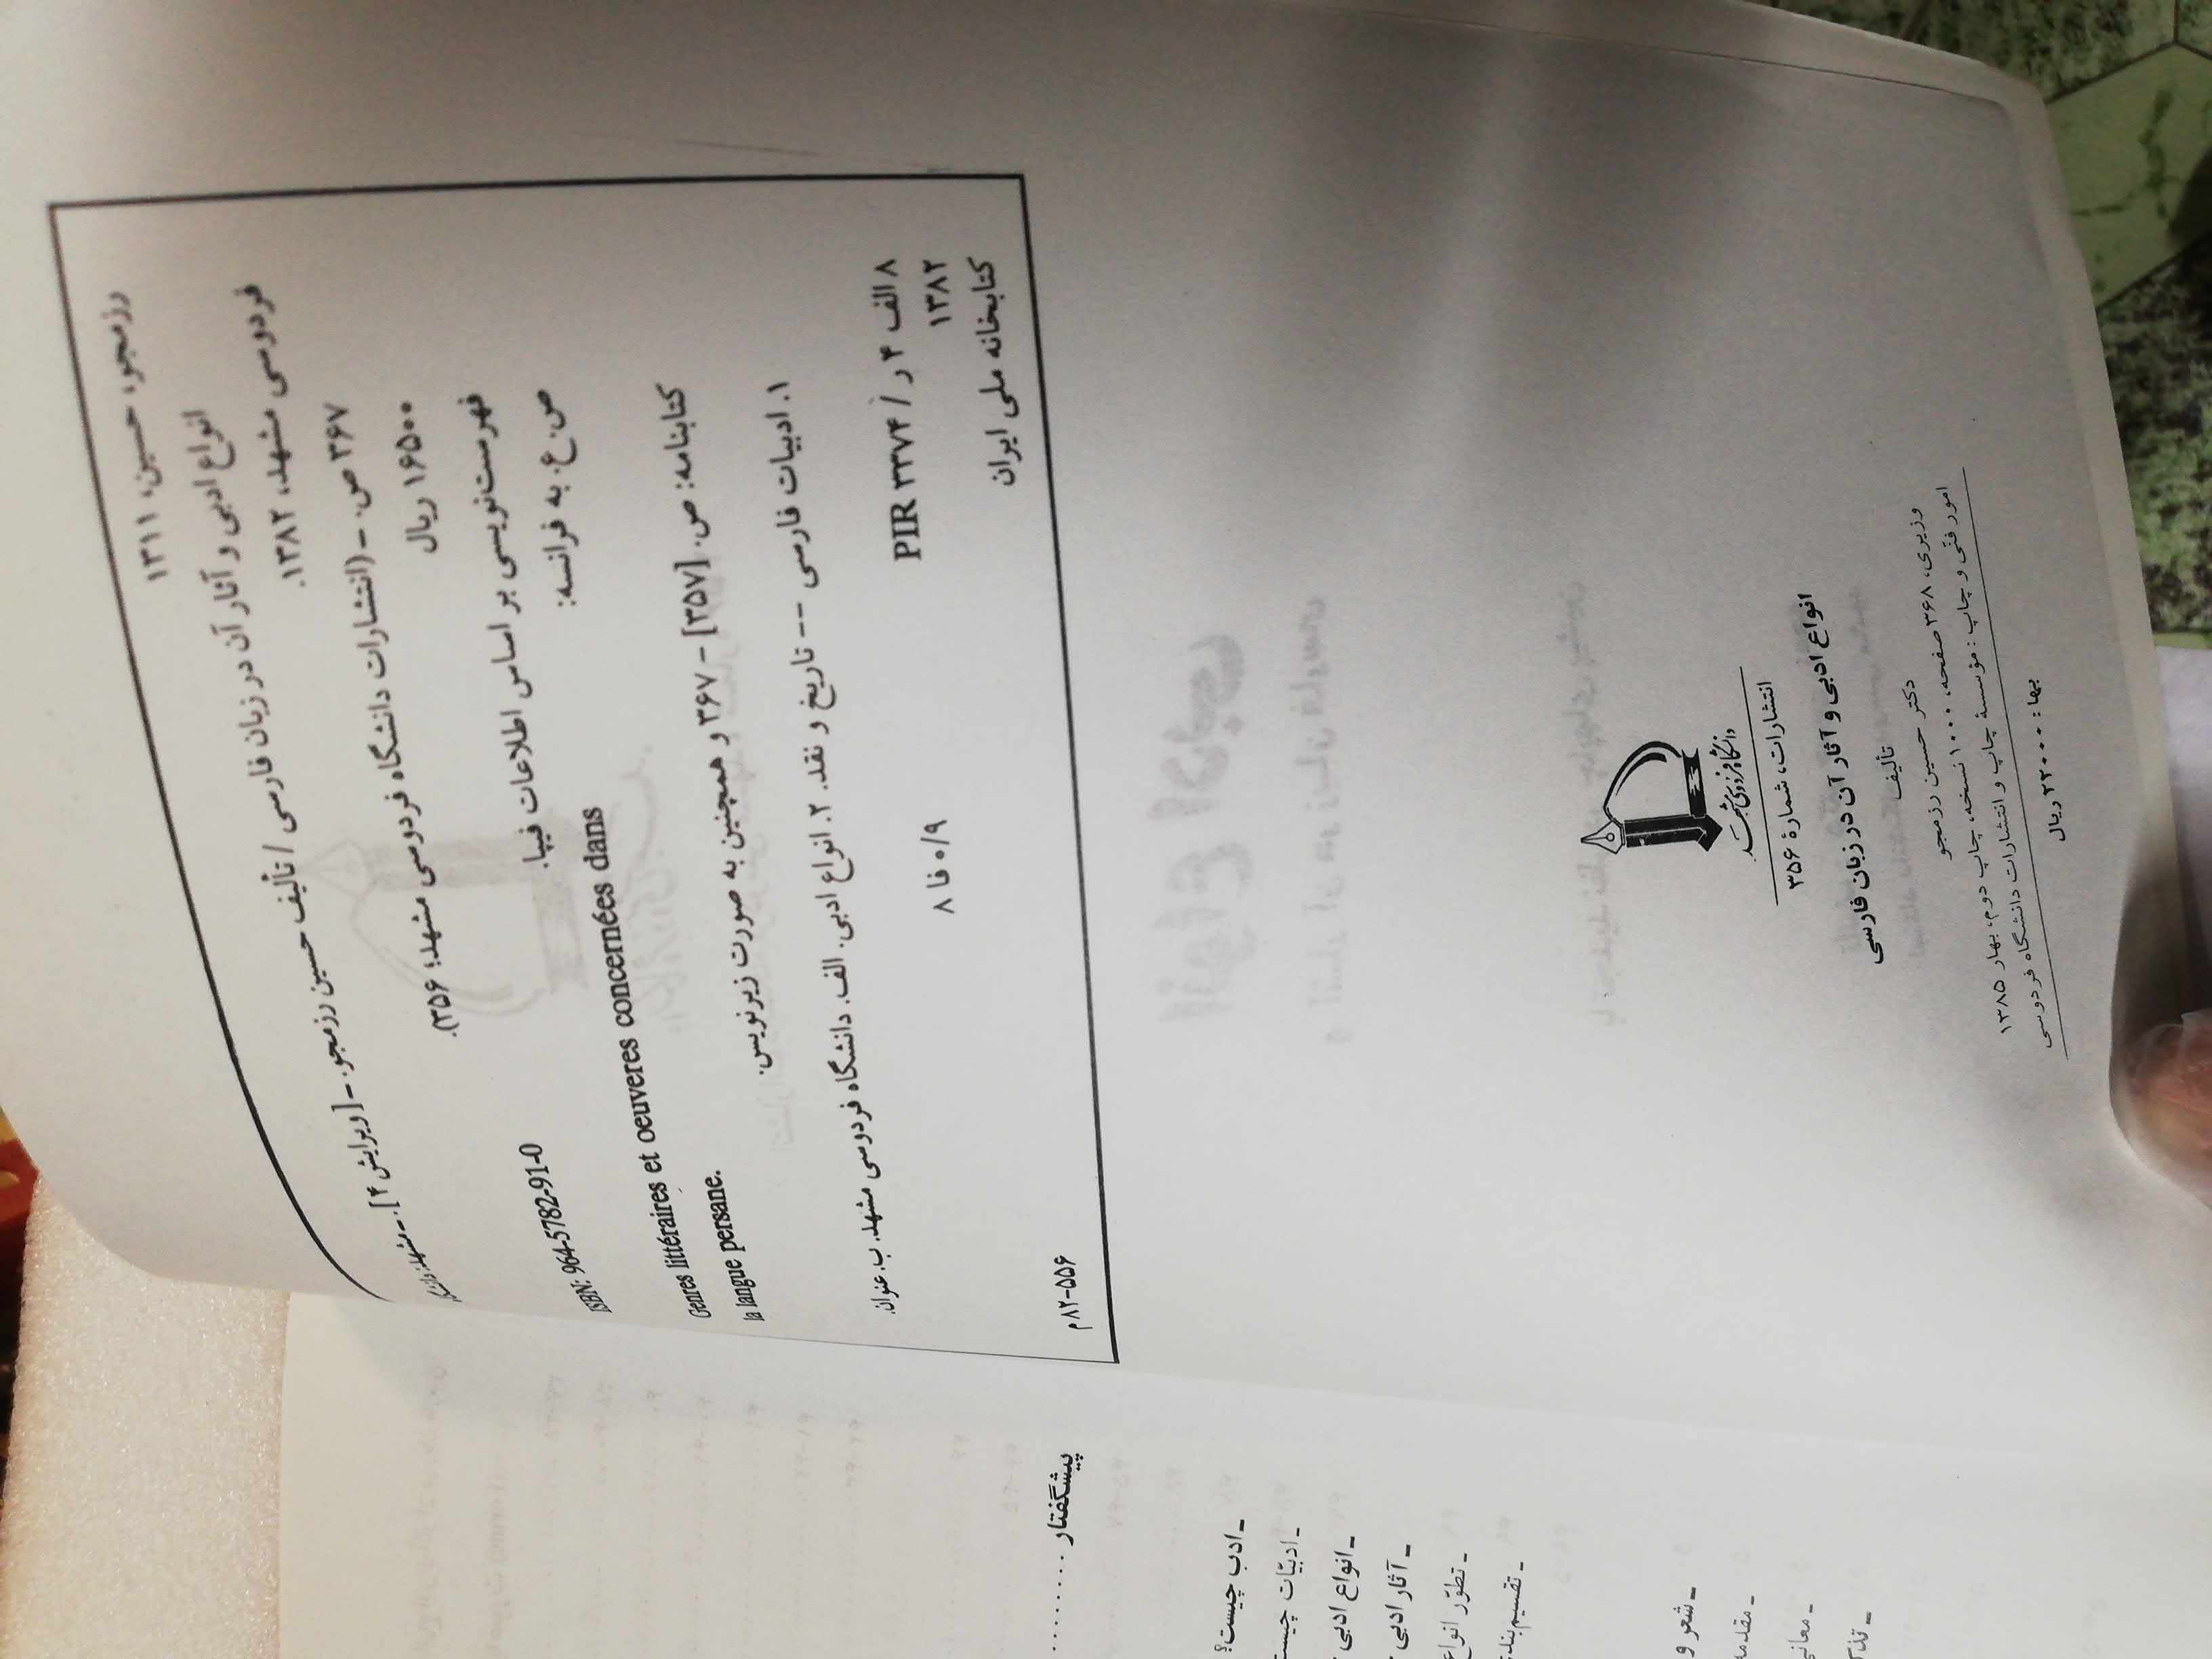 رزمجو، حسین، ۱۳۱۱
انواع ادبی و آثار آن در زبان فارسی / تألیف حسین رزمجو. - [ویرایش ۴]. - مشهد: دانشگاه
فردوسی مشهد، ۱۳۸۲.
۳۶۷ ص. - (انتشارات دانشگاه فردوسی مشهد؛ ۳۵۶).
۱۶۵۰۰ ریال
ISBN: 964-5782-91-0
فهرست‌نویسی بر اساس اطلاعات فیپا.
ص. ع. به فرانسه:
Genres littéraires et oeuveres concernées dans
la langue persane.
کتابنامه: ص. [۳۵۷] - ۳۶۷ و همچنین به صورت زیرنویس.
۱. ادبیات فارسی -- تاریخ و نقد. ۲. انواع ادبی. الف. دانشگاه فردوسی مشهد. ب. عنوان.
۸ الف ۴ ر / PIR ۳۳۷۴
۸ فا ۰/۹
۱۳۸۲
کتابخانه ملی ایران
م۸۲-۵۵۶
دانشگاه فردوسی مشهد
انتشارات، شمارهٔ ۳۵۶
انواع ادبی و آثار آن در زبان فارسی
تألیف
دکتر حسین رزمجو
وزیری، ۳۶۸ صفحه، ۱۰۰۰ نسخه، چاپ دوم، بهار ۱۳۸۵
امور فنّی و چاپ: مؤسسهٔ چاپ و انتشارات دانشگاه فردوسی
بها: ۲۲۰۰۰ ریال
پیشگفتار ........
- ادب چیست؟
- ادبیّات چیست
- انواع ادبی
- آثار ادبی
- تطوّر انواع
- تقسیم‌بند
- شعر و
- مقدمه
- معانی